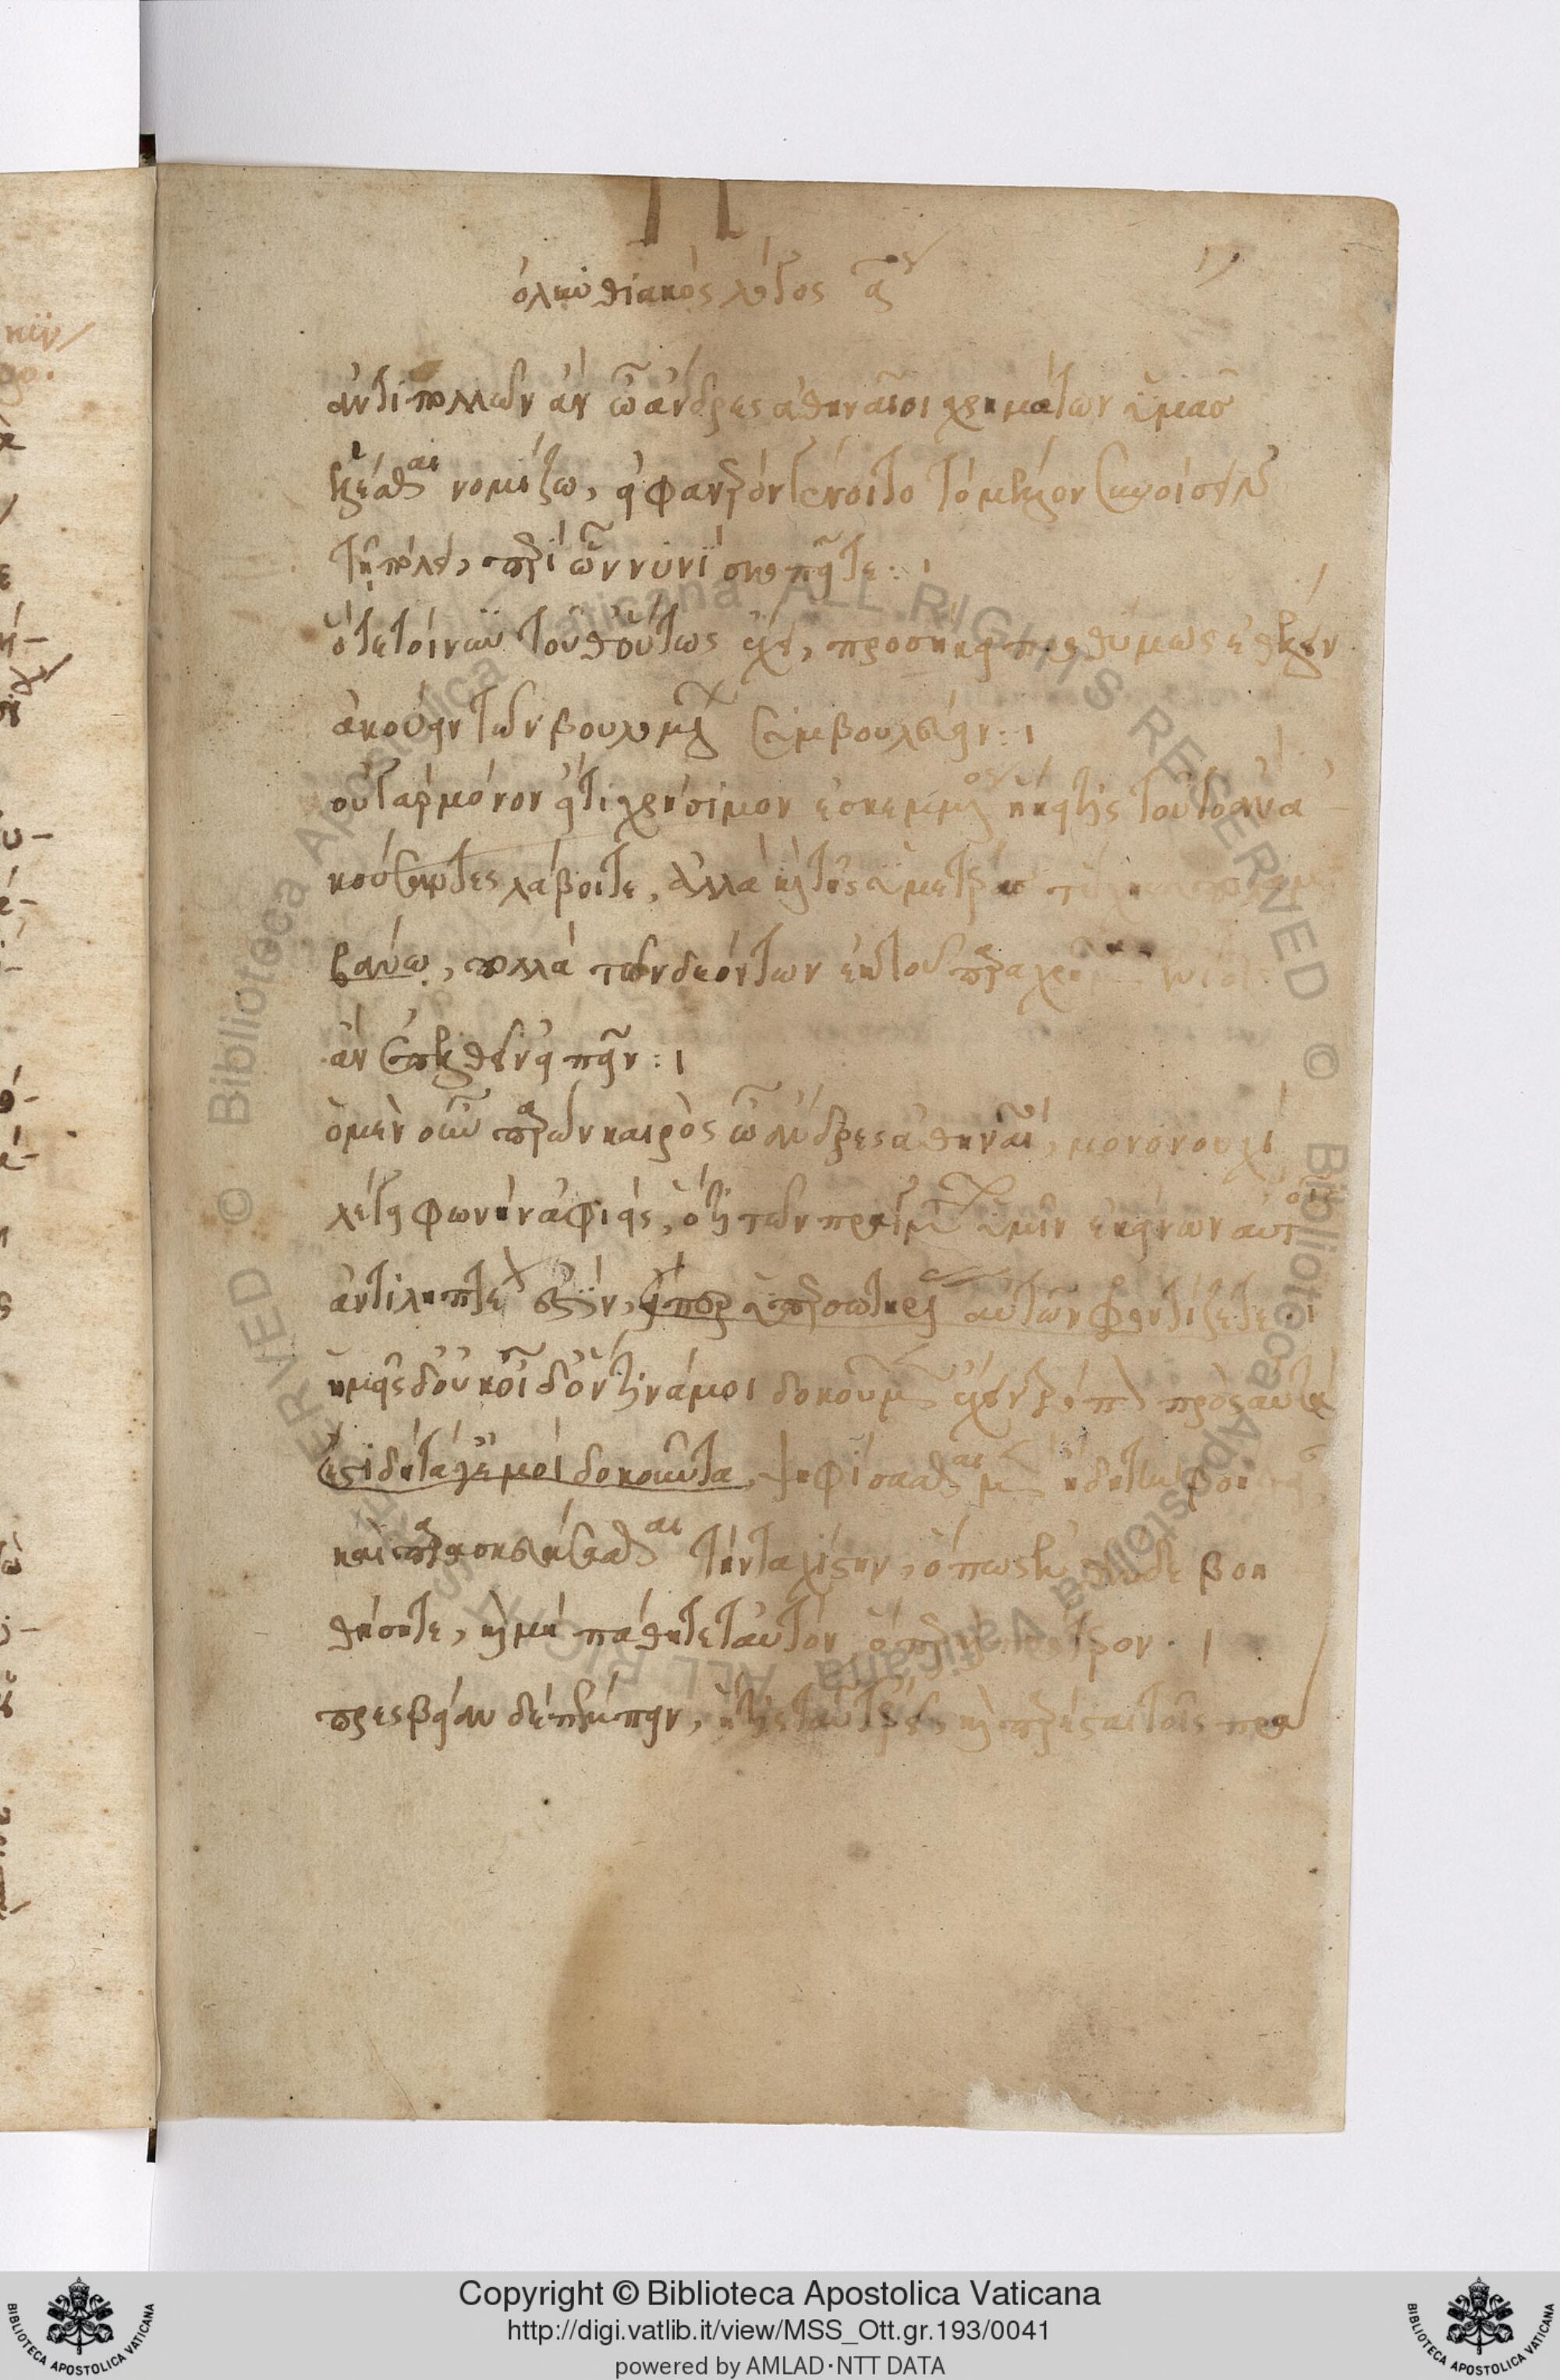 ὀλυνθιακὸς λόγος αος
ἀντὶ πολλῶν ἂν ὦ ἄνδρες ἀθηναῖοι χρημάτων ὑμᾶσ
ἑλέσθαι νομίζω, εἰ φανερὸν γένοιτο τὸ μέλλον συνοίσειν
τῇ πόλει, περὶ ὧν νυνὶ σκοπεῖτε:
ὅτε τοίνυν τοῦθ οὕτως ἔχει, προσήκει προθύμως ἐθέλειν
ἀκούειν τῶν βουλομένων συμβουλεύειν:
οὐ γὰρ μόνον εἴ τι χρήσιμον ἐσκεμμένος ἥκει τὶς τοῦτο ἂν ἀ
κούσαντες λάβοιτε, ἀλλὰ καὶ τῆς ὑμετέρας τύχης ὑπολαμ
βάνω, πολλὰ τῶν δεόντων ἐκ τοῦ παραχρῆμα
ἂν ἐπελθεῖν εἰπεῖν:
ὁ μὲν οὖν παρὼν καιρὸς ὦ ἄνδρες ἀθηναῖοι, μονονουχὶ
λέγει φωνὴν ἀφιεὶς, ὅτι τῶν πραγμάτων ὑμῖν ἐκείνων αὐτοῖς
ἀντιληπτέον ἐστὶν, εἴπερ ὑπὲρ σωτηρίας αὐτῶν φροντίζετε.
ἡμεῖς δ οὐκ οἶδ ὅντινά μοι δοκοῦμεν ἔχειν τρόπον πρὸς αὐτά
ἔστι δὴ τά γ ἐμοὶ δοκοῦντα, ψηφίσασθαι μὲν ἤδη τὴν βοήθειαν
καὶ παρασκευάσασθαι τὴν ταχίστην, ὅπως ἐνθένδε βοη
θήσητε, καὶ μὴ πάθητε ταυτὸν ὅπερ καὶ πρότερον.
πρεσβείαν δὲ πέμπειν, ἥτις ταῦτ ἐρεῖ, καὶ παρέσται τοῖς πρα
Copyright © Biblioteca Apostolica Vaticana
http://digi.vatlib.it/view/MSS_Ott.gr.193/0041
powered by AMLAD·NTT DATA
BIBLIOTECA APOSTOLICA VATICANA
BIBLIOTECA APOSTOLICA VATICANA